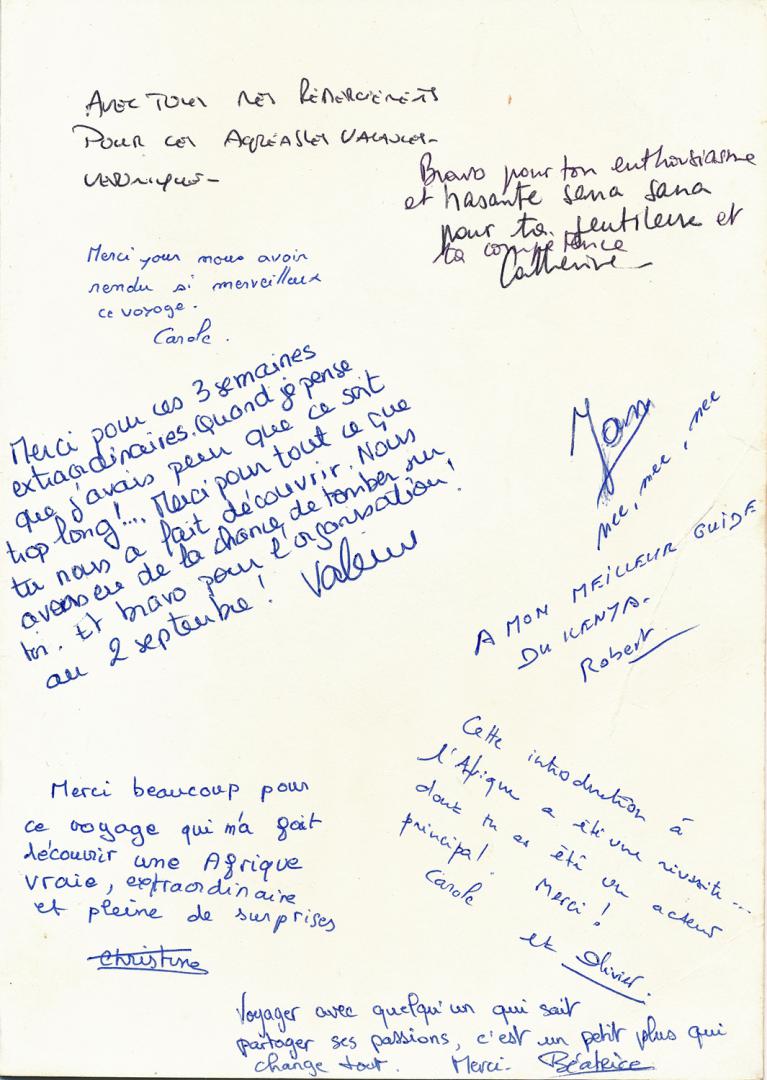 AVEC TOUS MES REMERCIEMENTS
POUR CES AGRÉABLES VACANCES-
VERONIQUE-
Bravo pour ton enthousiasme
et hasante sana sana
pour ta gentilesse et
ta compétence
Catherine
Merci pour nous avoir
rendu si merveilleux
ce voyage.
Carole.
Merci pour ces 3 semaines
extraordinaires. Quand je pense
que j'avais peur que ce soit
trop long!.... Merci pour tout ce que
tu nous a fait découvrir. Nous
avons eu de la chance de tomber sur
toi. Et bravo pour l'organisation!
au 2 septembre! Valérie
nee, nee, nee, nee
A MON MEILLEUR GUIDE
DU KENYA.
Robert
Cette introduction à
l'Afrique a été une réussite...
dont tu as été un acteur
principal. Merci!
Carole
et Olivier.
Merci beaucoup pour
ce voyage qui m'a fait
découvrir une Afrique
vraie, extraordinaire
et pleine de surprises
Christine
Voyager avec quelqu'un qui sait
partager ses passions, c'est un petit plus qui
change tout. Merci. Béatrice